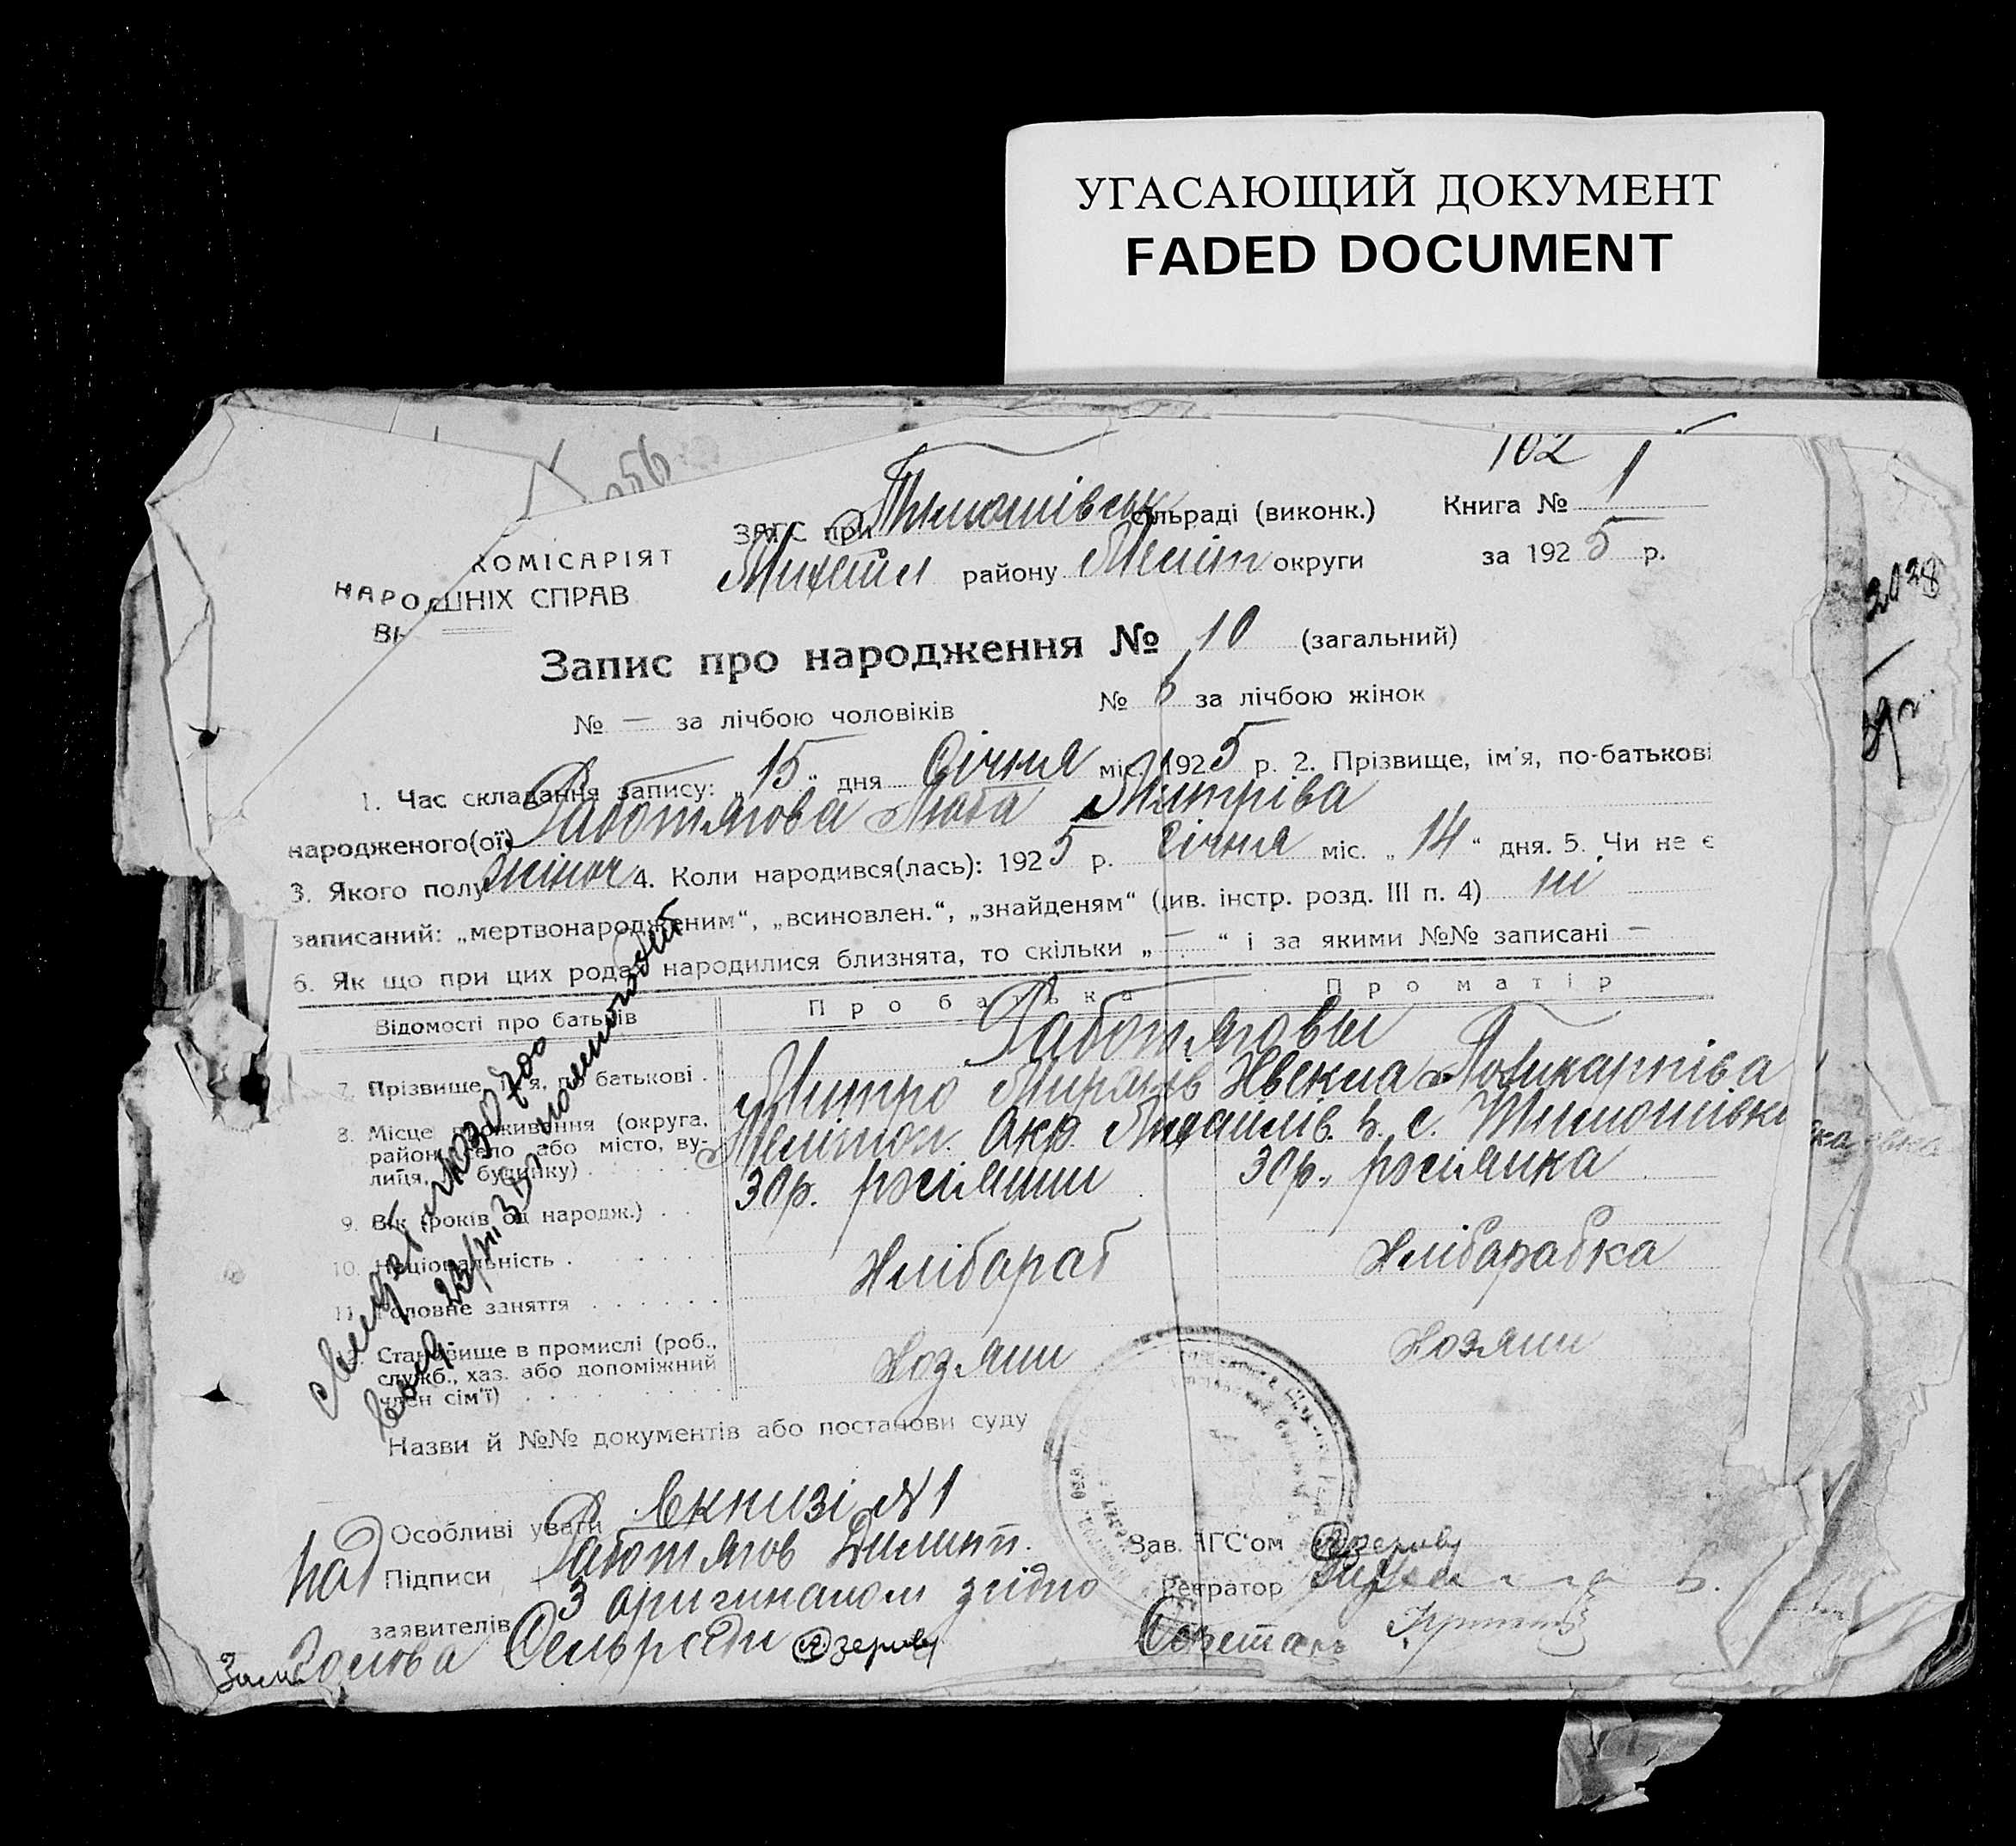 УГАСАЮЩИЙ ДОКУМЕНТ
FADED DOCUMENT
102
056
КОМІСАРІЯТ
НАРО ШНІХ СПРАВ
ЗАГС при Тимошівськ сільраді (виконк.) Книга № 1
Михайл району Меліт округи за 1925 р.
2028
Запис про народження № 10 (загальний)
№ — за лічбою чоловіків № 6 за лічбою жінок
1. Час складання запису: „15“ дня Січня міс. 1925 р. 2. Прізвище, ім'я, по-батькові
народженого(ої) Работягова Люба Митріва
3. Якого полу жіноч 4. Коли народився(лась): 1925 р. Січня міс. „14“ дня. 5. Чи не є
записаний: „мертвонародженим“, „всиновлен.“, „знайденям“ (див. інстр. розд. III п. 4) ні
6. Як що при цих родах народилися близнята, то скільки „—“ і за якими №№ записані —
Відомості про батьків Про батька Про матір
Работяговы
7. Прізвище, ім'я, по батькові . Митро Явекла Полікарпіва
8. Місце проживання (округа, район, село або місто, вулиця, № будинку) Мелітоп. Окр. Михайлів. р. с. Тимошівки
9. Вік (років од народж.) . . 30р. росіянин 30р. росіянка
10. Національність
11. Головне заняття Хлібараб Хлібарабка
12. Становище в промислі (роб., служб., хаз. або допоміжний член сім'ї) Хозяин Хозяин
Назви й №№ документів або постанови суду
Особливі уваги Вкнизі №1
Підписи Работягов Димит.
заявителів З оригиналом згідно
Зам. Голова Сельради
Зав. ЗАГС'ом
Реєтратор
Секретарь